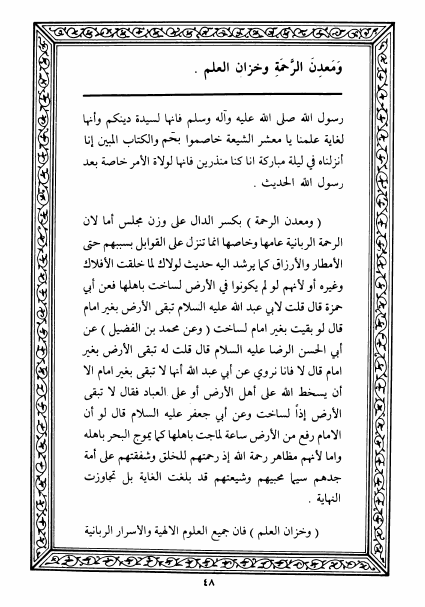 وَمَعدِنَ الرَّحمَةِ وخزان العلم .
رسول الله صلى الله عليه وآله وسلم فانها لسيدة دينكم وأنها
لغاية علمنا يا معشر الشيعة خاصموا بحم والكتاب المبين إنا
أنزلناه في ليلة مباركة انا كنا منذرين فانها لولاة الأمر خاصة بعد
رسول الله الحديث .
( ومعدن الرحمة ) بكسر الدال على وزن مجلس أما لان
الرحمة الربانية عامها وخاصها انما تنزل على القوابل بسببهم حتى
الأمطار والأرزاق كما يرشد اليه حديث لولاك لما خلقت الأفلاك
وغيره أو لأنهم لو لم يكونوا في الأرض لساخت باهلها فعن أبي
حمزة قال قلت لابي عبد الله عليه السلام تبقى الأرض بغير امام
قال لو بقيت بغير امام لساخت ( وعن محمد بن الفضيل ) عن
أبي الحسن الرضا عليه السلام قال قلت له تبقى الأرض بغير
امام قال لا فانا نروي عن أبي عبد الله أنها لا تبقى بغير امام الا
أن يسخط الله على أهل الأرض أو على العباد فقال لا تبقى
الأرض إذاً لساخت وعن أبي جعفر عليه السلام قال لو أن
الامام رفع من الأرض ساعة لماجت باهلها كما يموج البحر باهله
واما لأنهم مظاهر رحمة الله إذ رحمتهم للخلق وشفقتهم على أمة
جدهم سيما محبيهم وشيعتهم قد بلغت الغاية بل تجاوزت
النهاية .
( وخزان العلم ) فان جميع العلوم الالهية والاسرار الربانية
٤٨